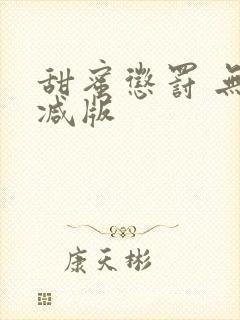 甜蜜懲罰 無
减版
康天彬